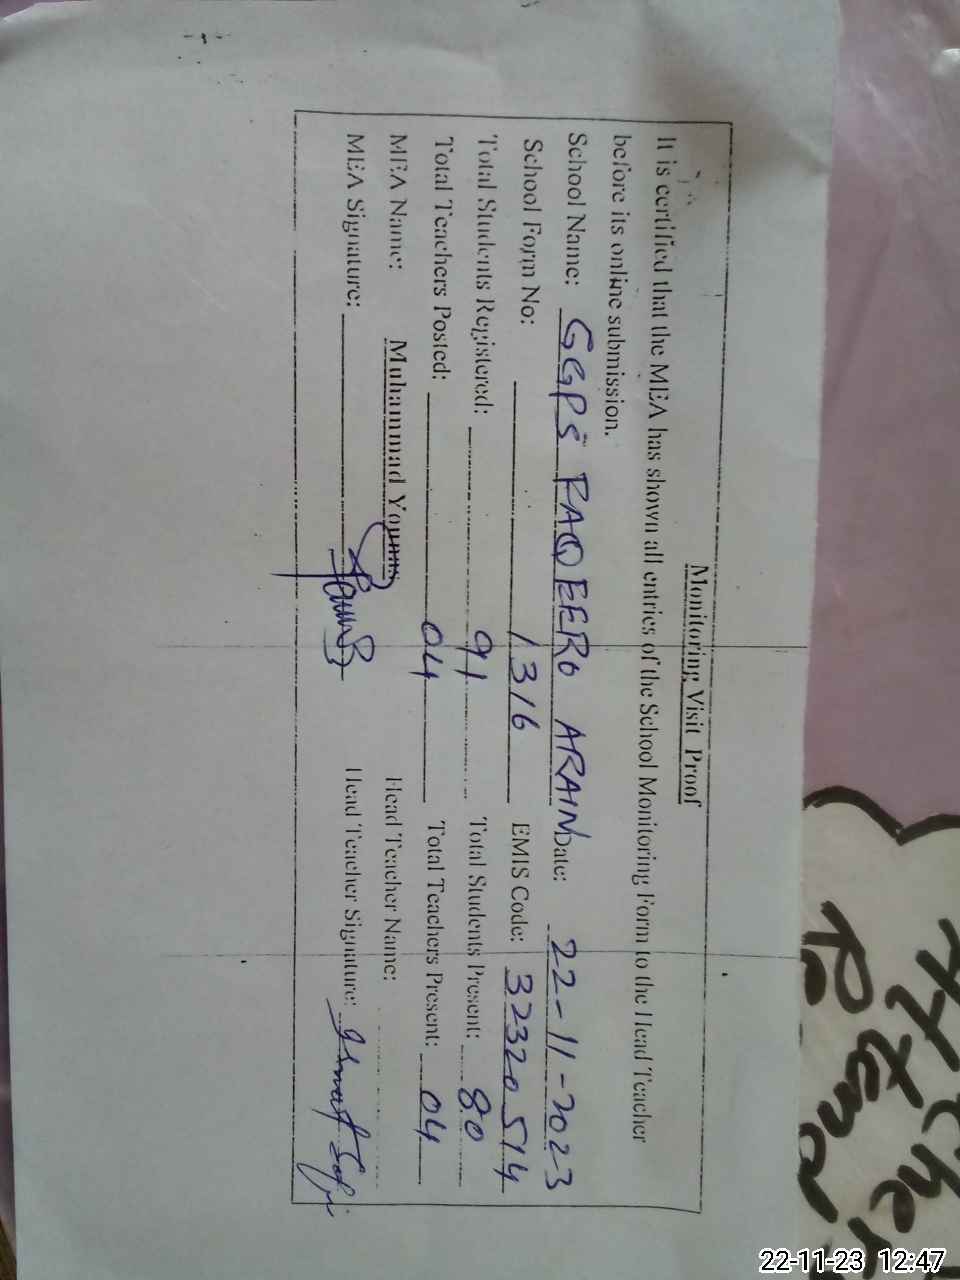 Monitoring Visit Proof
It is certified that the MEA has shown all entries of the School Monitoring Form to the Head Teacher
before its online submission.
School Name: GGPS FAQEERO ARAIN Date: 22-11-2023
School Form No: 1316 EMIS Code: 32320514
Total Students Registered: 91 Total Students Present: 80
Total Teachers Posted: 04 Total Teachers Present: 04
MEA Name: Muhammad Younas Head Teacher Name:
MEA Signature: Head Teacher Signature:
22-11-23 12:47